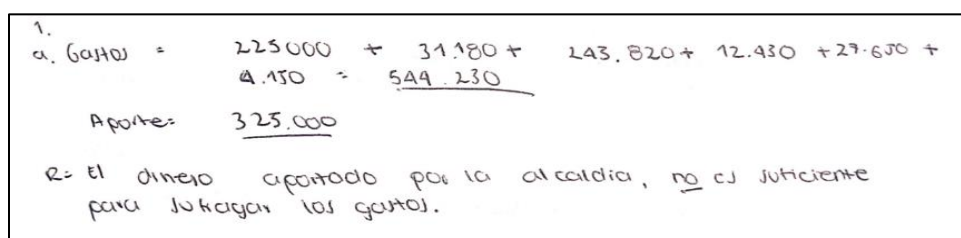 1.
a. Gastos = 225000 + 31.180 + 243.820 + 12.430 + 27.650 +
4.150 = 544.230
Aporte= 325.000
R= El dinero aportado por la alcaldia, no es suficiente
para sufragar los gastos.